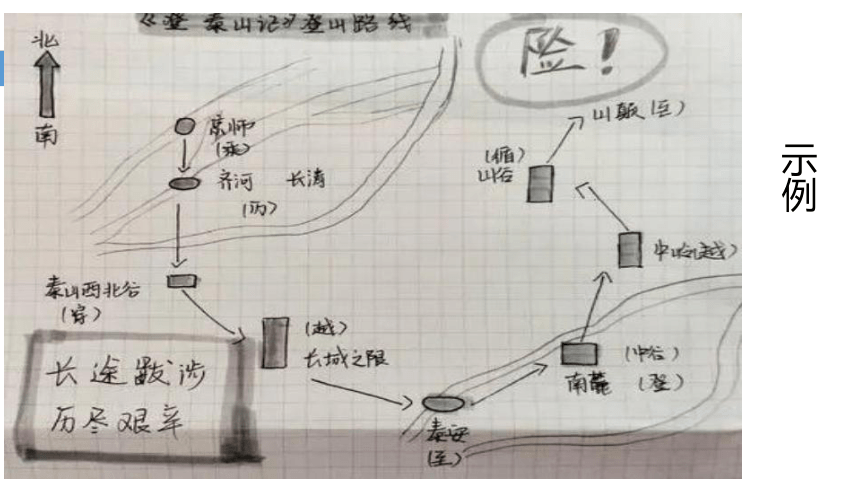 《登泰山记》登山路线
北
南
险！
京师
(乘)
齐河 长清
(历)
泰山西北谷
(穿)
(越)
长城之限
泰安
(至)
南麓 (登)
(中谷)
中岭(越)
(循)
山谷
山巅(至)
长途跋涉
历尽艰辛
示例